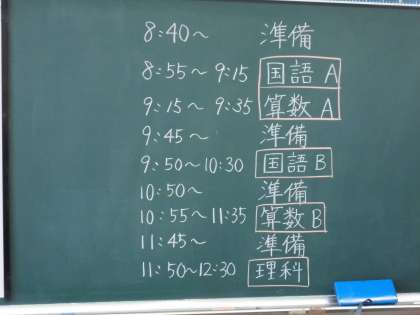 8:40～ 準備
8:55～9:15 国語A
9:15～9:35 算数A
9:45～ 準備
9:50～10:30 国語B
10:50～ 準備
10:55～11:35 算数B
11:45～ 準備
11:50～12:30 理科